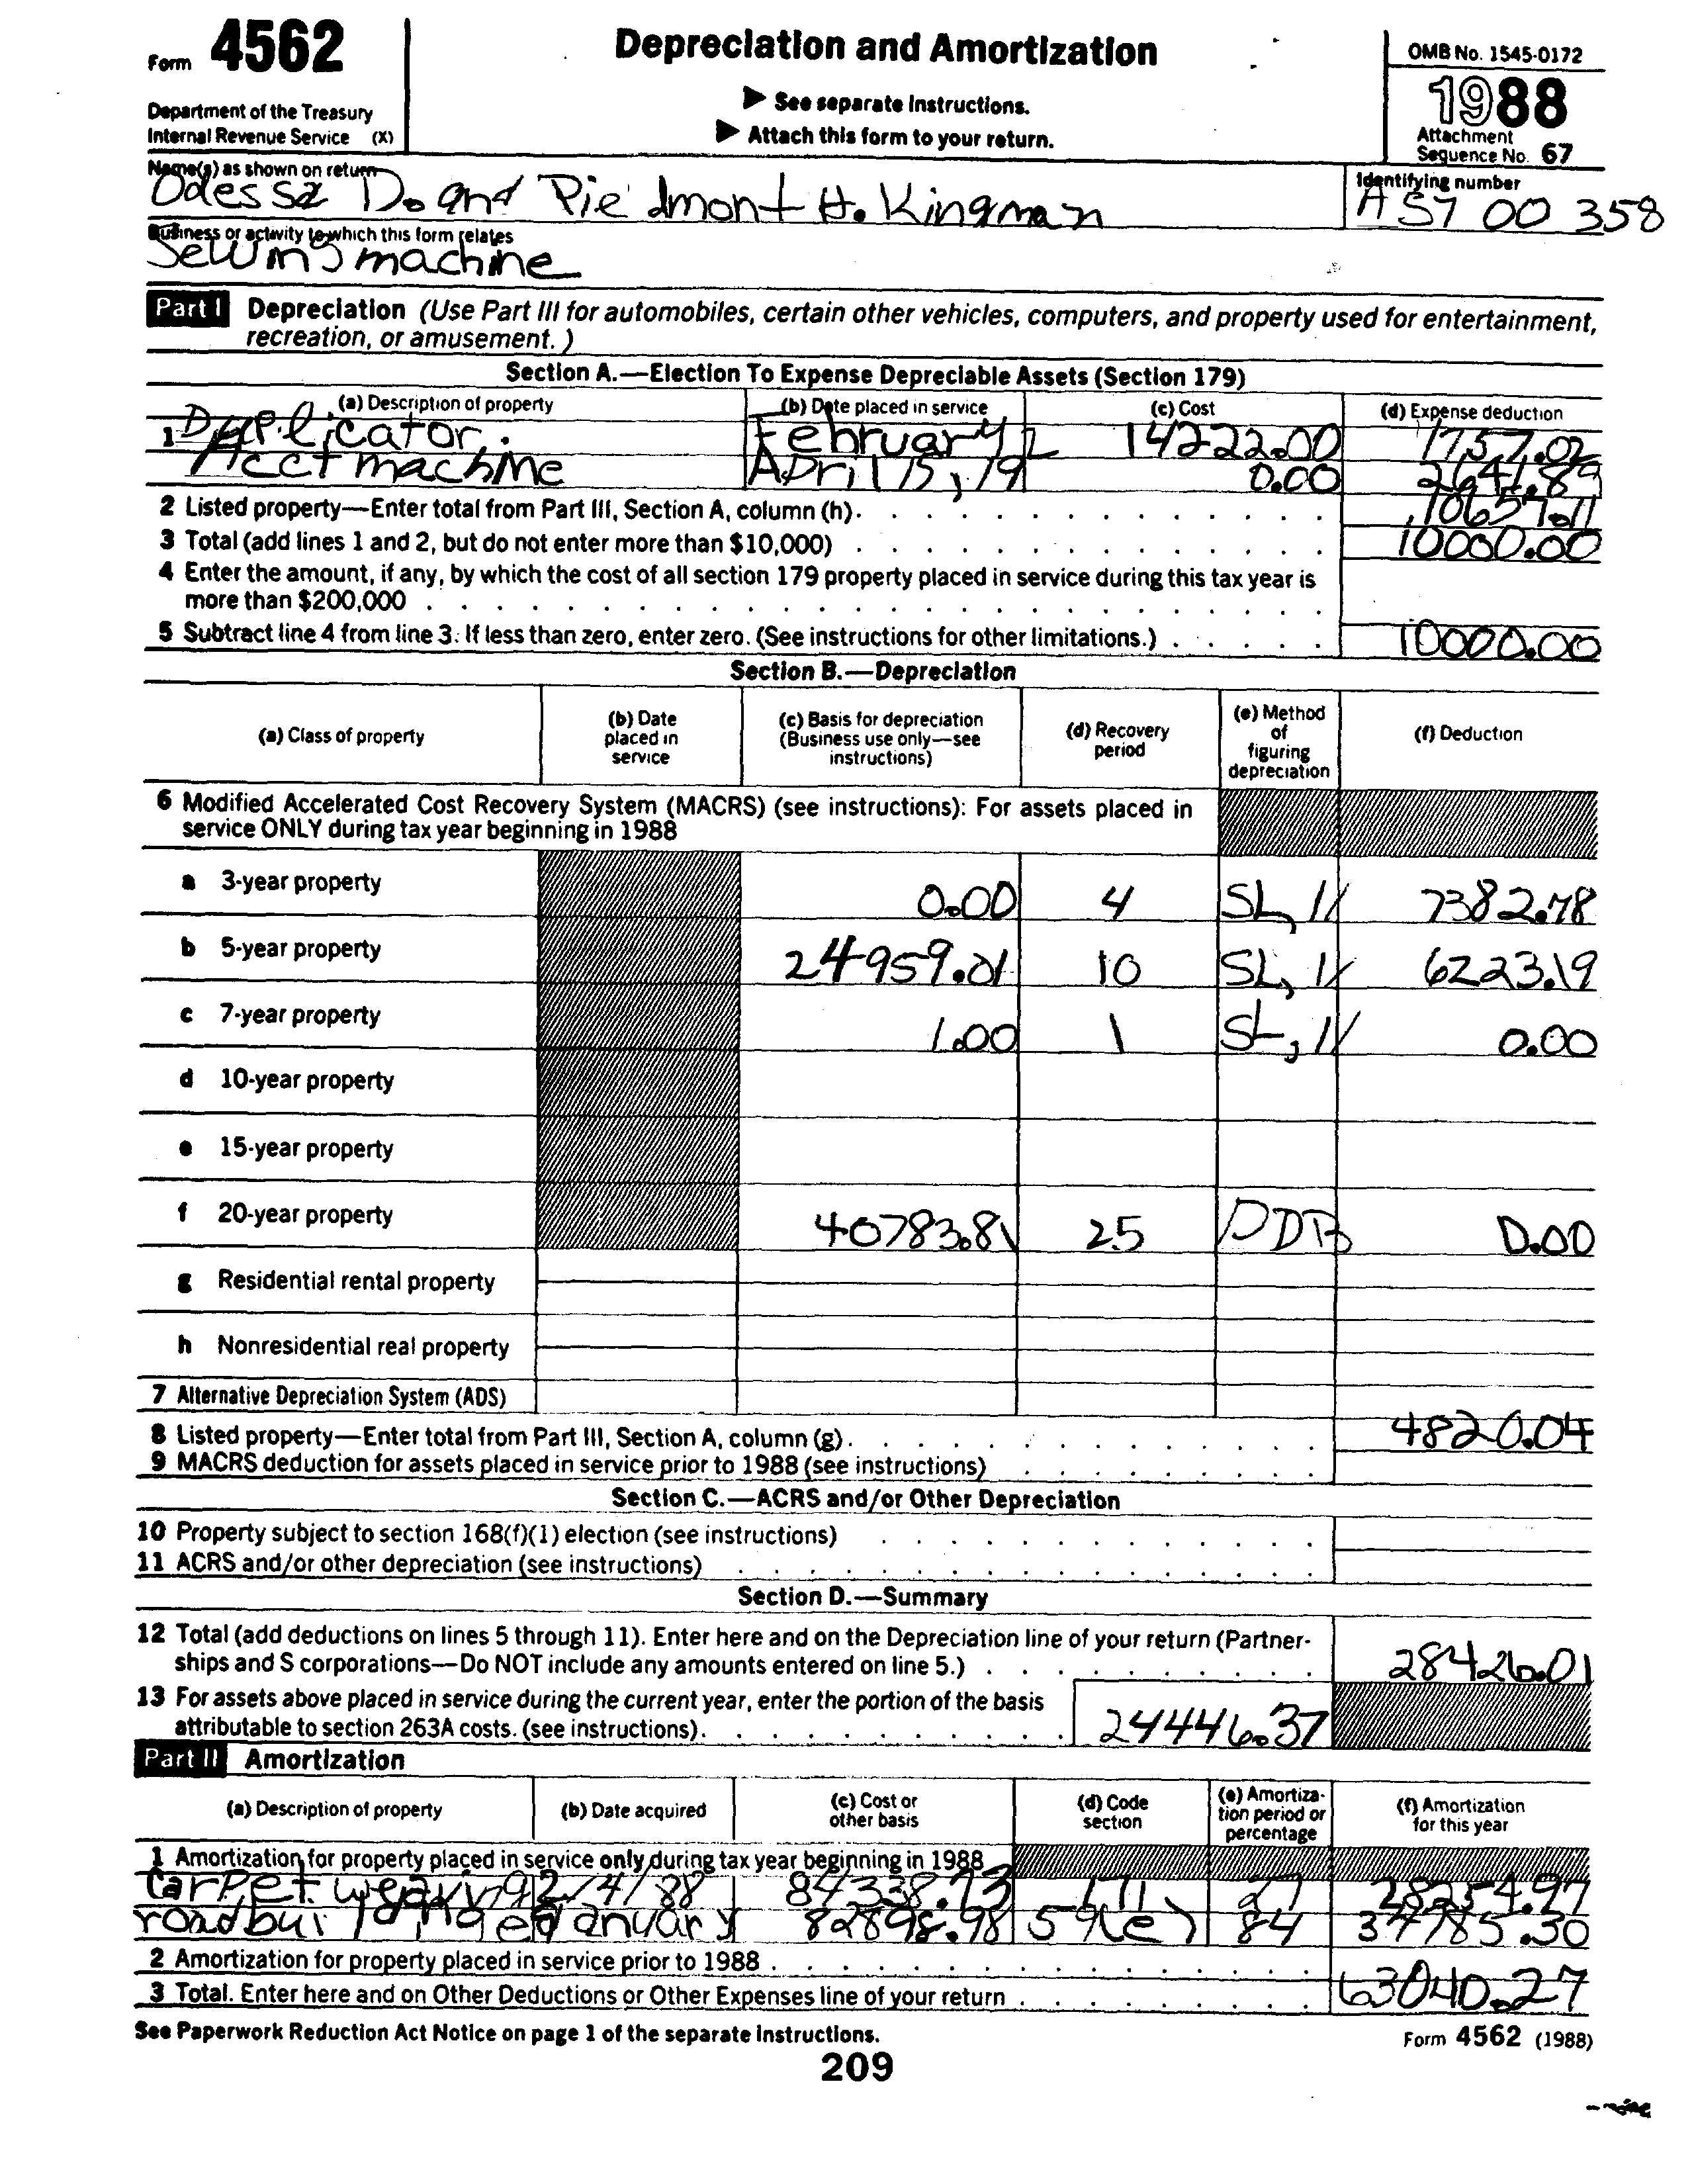 Form 4562
Depreciation and Amortization
OMB No. 1545-0172
1988
Department of the Treasury
Internal Revenue Service (X)
▶ See separate Instructions.
▶ Attach this form to your return.
Attachment
Sequence No. 67
Name(s) as shown on return
Identifying number
Odessa D. and Piedmont H. Kingman
A 57 00 358
Business or activity to which this form relates
Sewing machine
Part I Depreciation (Use Part III for automobiles, certain other vehicles, computers, and property used for entertainment,
recreation, or amusement.)
Section A.—Election To Expense Depreciable Assets (Section 179)
(a) Description of property (b) Date placed in service (c) Cost (d) Expense deduction
1 Duplicator. February 14222.00 1757.02
Acct machine April 15, 19 0.00 2641.89
2 Listed property—Enter total from Part III, Section A, column (h). 10657.11
3 Total (add lines 1 and 2, but do not enter more than $10,000) 10000.00
4 Enter the amount, if any, by which the cost of all section 179 property placed in service during this tax year is
more than $200,000
5 Subtract line 4 from line 3. If less than zero, enter zero. (See instructions for other limitations.) 10000.00
Section B.—Depreciation
(a) Class of property (b) Date placed in service (c) Basis for depreciation (Business use only—see instructions) (d) Recovery period (e) Method of figuring depreciation (f) Deduction
6 Modified Accelerated Cost Recovery System (MACRS) (see instructions): For assets placed in
service ONLY during tax year beginning in 1988
a 3-year property 0.00 4 SL, 7382.78
b 5-year property 24959.01 10 SL, 6223.19
c 7-year property 1.00 1 SL, 0.00
d 10-year property
e 15-year property
f 20-year property 40783.81 25 DDB 0.00
g Residential rental property
h Nonresidential real property
7 Alternative Depreciation System (ADS)
8 Listed property—Enter total from Part III, Section A, column (g). 4820.04
9 MACRS deduction for assets placed in service prior to 1988 (see instructions)
Section C.—ACRS and/or Other Depreciation
10 Property subject to section 168(f)(1) election (see instructions)
11 ACRS and/or other depreciation (see instructions)
Section D.—Summary
12 Total (add deductions on lines 5 through 11). Enter here and on the Depreciation line of your return (Partner-
ships and S corporations—Do NOT include any amounts entered on line 5.) 28426.01
13 For assets above placed in service during the current year, enter the portion of the basis
attributable to section 263A costs. (see instructions). 24446.37
Part II Amortization
(a) Description of property (b) Date acquired (c) Cost or other basis (d) Code section (e) Amortization period or percentage (f) Amortization for this year
1 Amortization for property placed in service only during tax year beginning in 1988
Carpet weaving 2/4/88 84338.73 171, 27 28254.97
road building January 82898.98 59(e) 84 34785.30
2 Amortization for property placed in service prior to 1988
3 Total. Enter here and on Other Deductions or Other Expenses line of your return 63040.27
See Paperwork Reduction Act Notice on page 1 of the separate Instructions.
Form 4562 (1988)
209